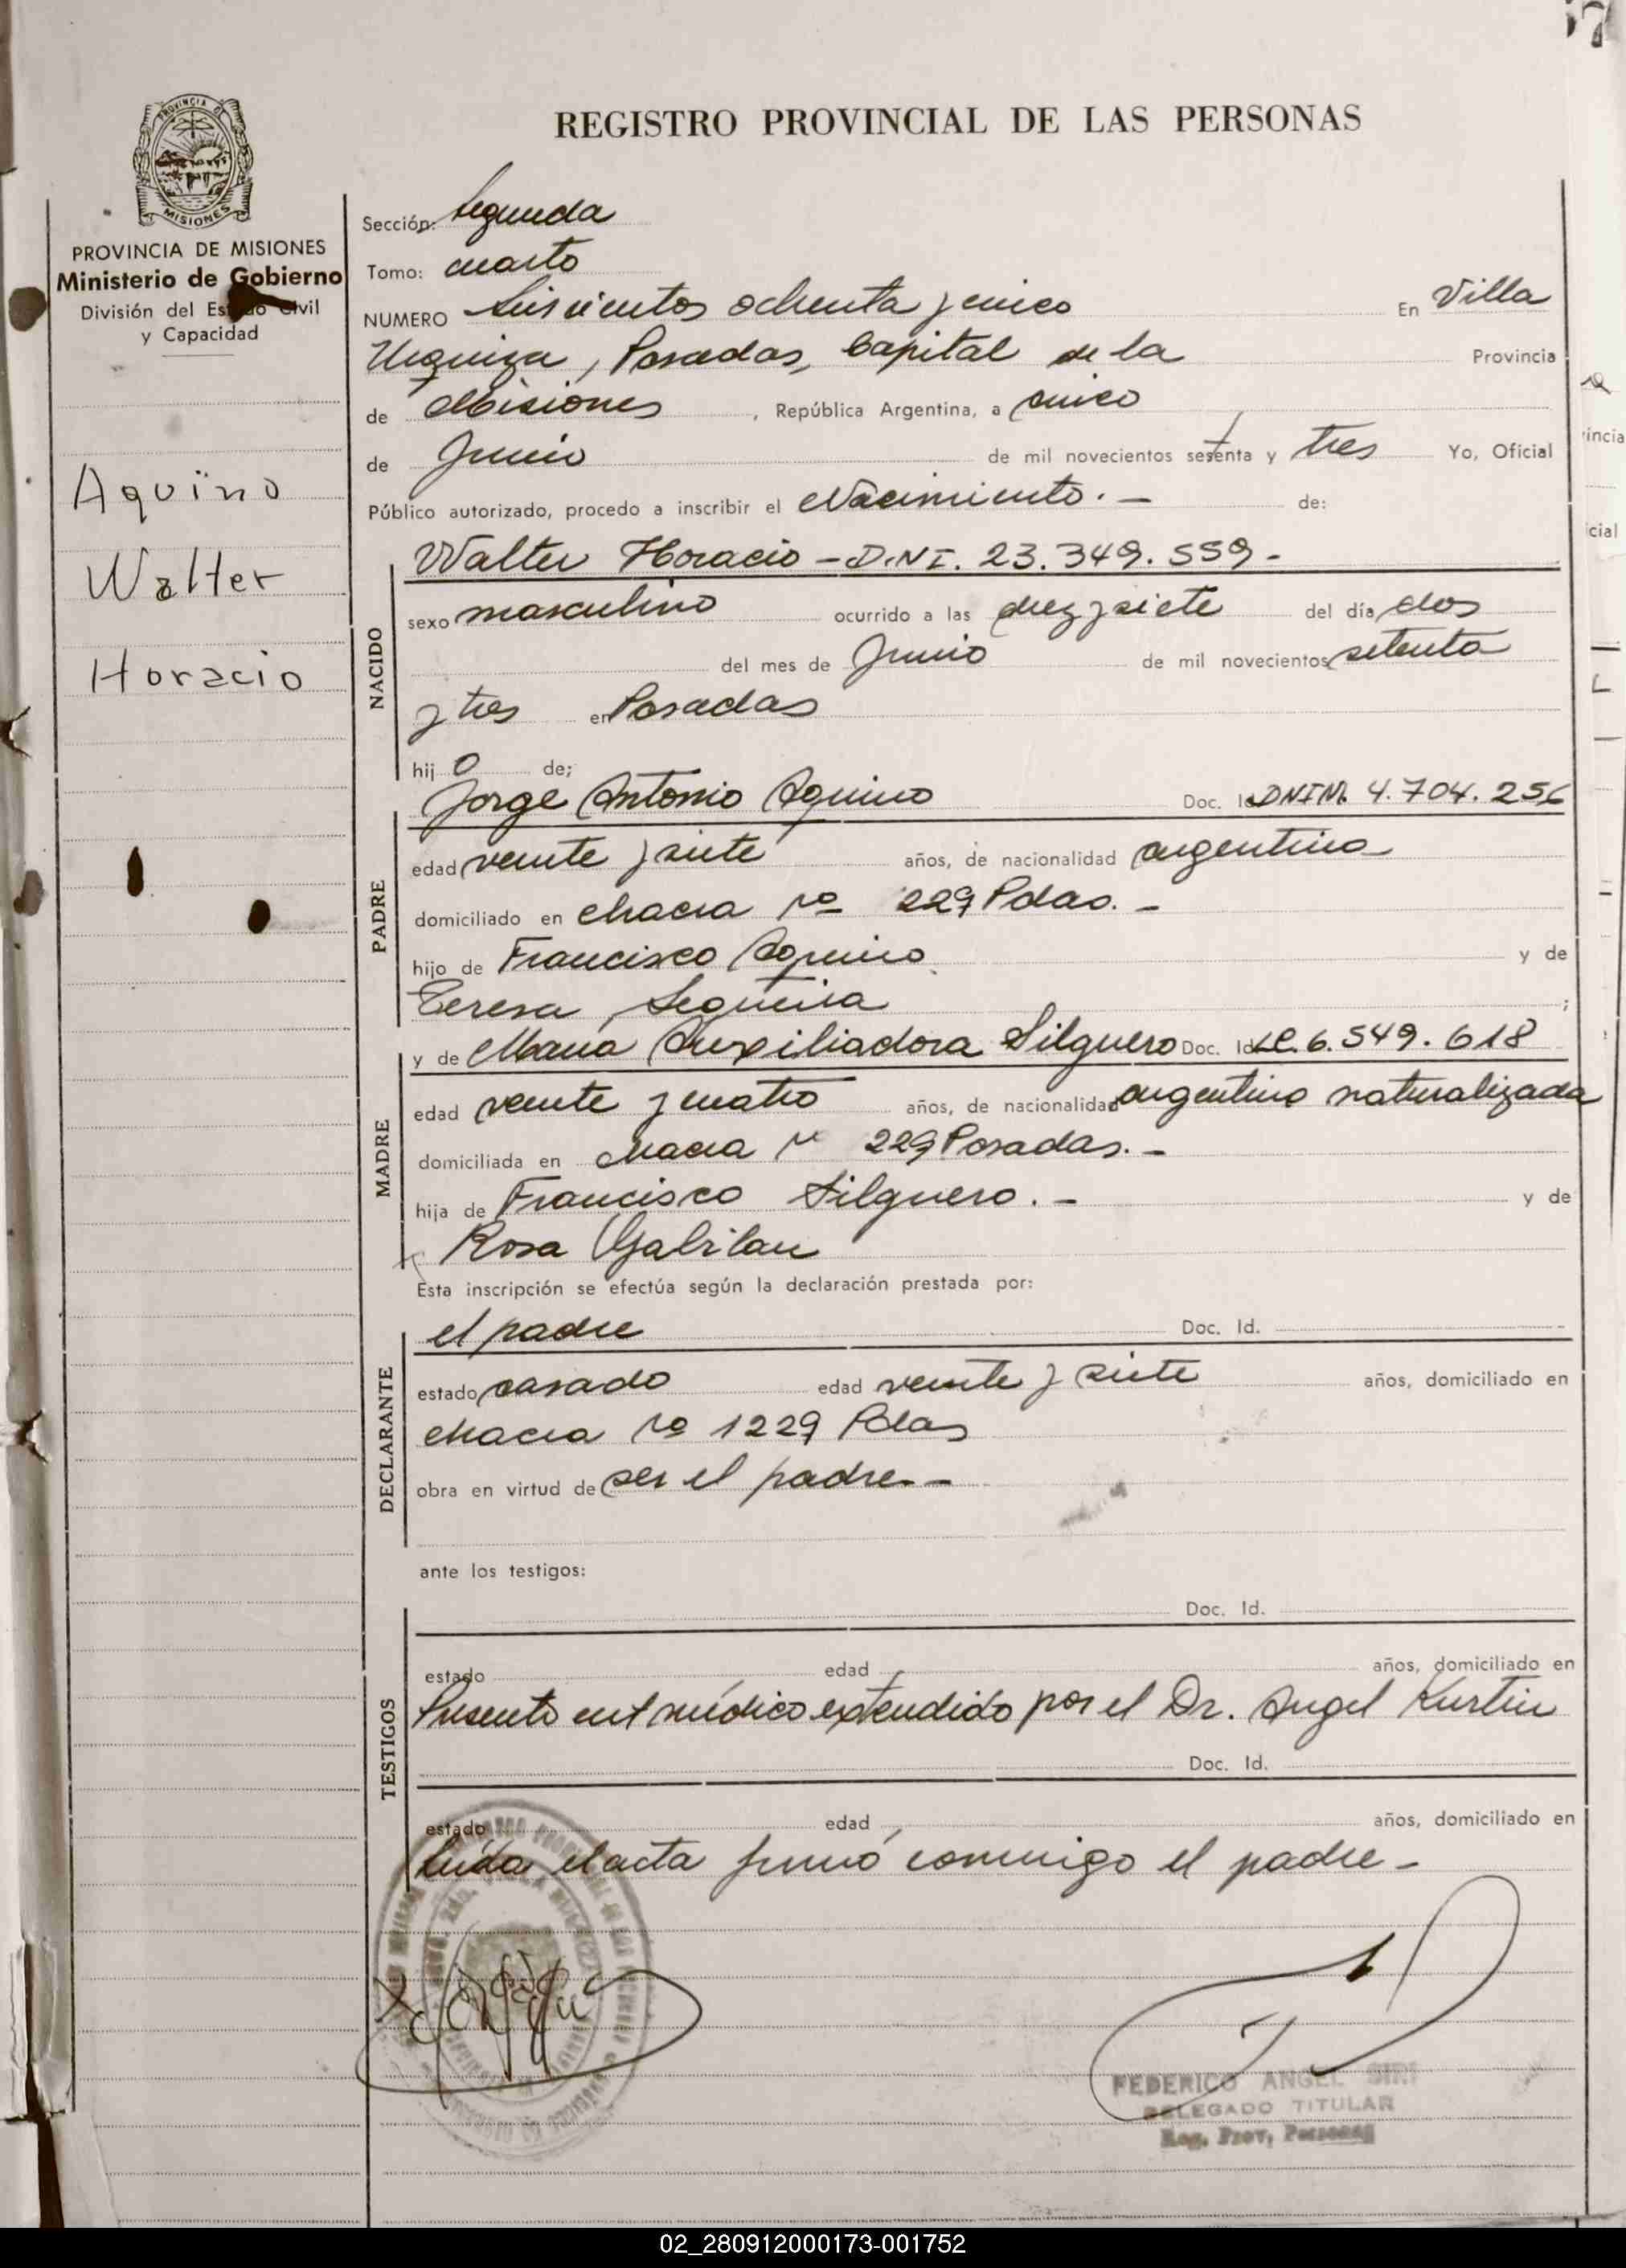 REGISTRO PROVINCIAL DE LAS PERSONAS
PROVINCIA DE MISIONES
Ministerio de Gobierno
División del Estado Civil
y Capacidad
Aquino
Walter
Horacio
Sección: Segunda
Tomo: cuarto
NUMERO Seiscientos ochenta y cinco En Villa
Urquiza, Posadas, Capital de la Provincia
de Misiones, República Argentina, a cinco
de Junio de mil novecientos setenta y tres Yo, Oficial
Público autorizado, procedo a inscribir el Nacimiento.- de:
Walter Horacio - D.N.I. 23.349.559-
NACIDO
sexo masculino ocurrido a las diez y siete del día dos
del mes de Junio de mil novecientos setenta
y tres en Posadas
hijo de;
Jorge Antonio Aquino Doc. Id DNIM. 4.704.256
PADRE
edad veinte y siete años, de nacionalidad argentina
domiciliado en chacra nº 229 Pdas.-
hijo de Francisco Aquino y de
Teresa Sequeira;
y de María Auxiliadora Silguero Doc. Id LC. 6.549.618
MADRE
edad veinte y cuatro años, de nacionalidad argentina naturalizada
domiciliada en chacra nº 229 Posadas.-
hija de Francisco Silguero.- y de
Rosa Gabilan
Esta inscripción se efectúa según la declaración prestada por:
el padre Doc. Id.
DECLARANTE
estado casado edad veinte y siete años, domiciliado en
chacra nº 1229 Pdas
obra en virtud de ser el padre.-
ante los testigos:
Doc. Id.
TESTIGOS
estado edad años, domiciliado en
Presento cert médico extendido por el Dr. Angel Kurtin
Doc. Id.
estado edad años, domiciliado en
Leída el acta firmó conmigo el padre-
FEDERICO ANGEL SIRI
DELEGADO TITULAR
Reg. Prov. Personas
02_280912000173-001752